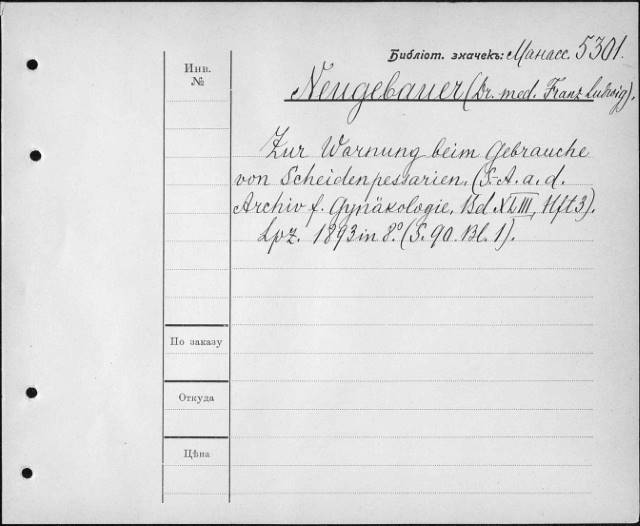 Библіот. значекъ: Манасс. 5301.
Инв.
№
Neugebauer (Dr. med. Franz Ludwig).
Zur Warnung beim Gebrauche
von Scheidenpessarien. (S. A. a. d.
Archiv f. Gynäkologie. Bd. XLIII, Hft 3).
Lpz. 1893 in 8.° (S. 90. Bl. 1).
По заказу
Откуда
Цѣна